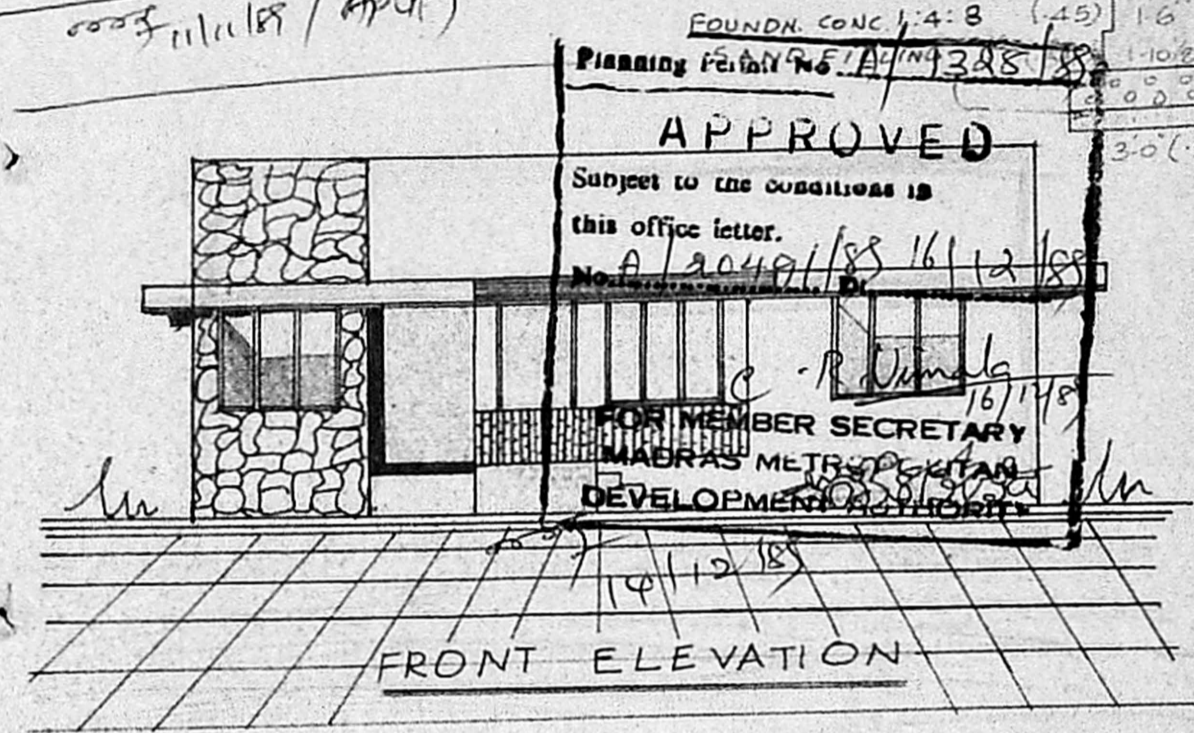 11/11/85 /
FOUNDN. CONC. 1:4:8 (.45) 1-6
SAND FILLING
Planning Permit No. A/ 9328/85
1-10
APPROVED
3-0 (.
Subject to the conditions in
this office letter.
No. A/20491/85 Dt. 16/12/85
R. Vimala
16/12/85
FOR MEMBER SECRETARY
MADRAS METROPOLITAN
DEVELOPMENT AUTHORITY
14/12/85
FRONT ELEVATION